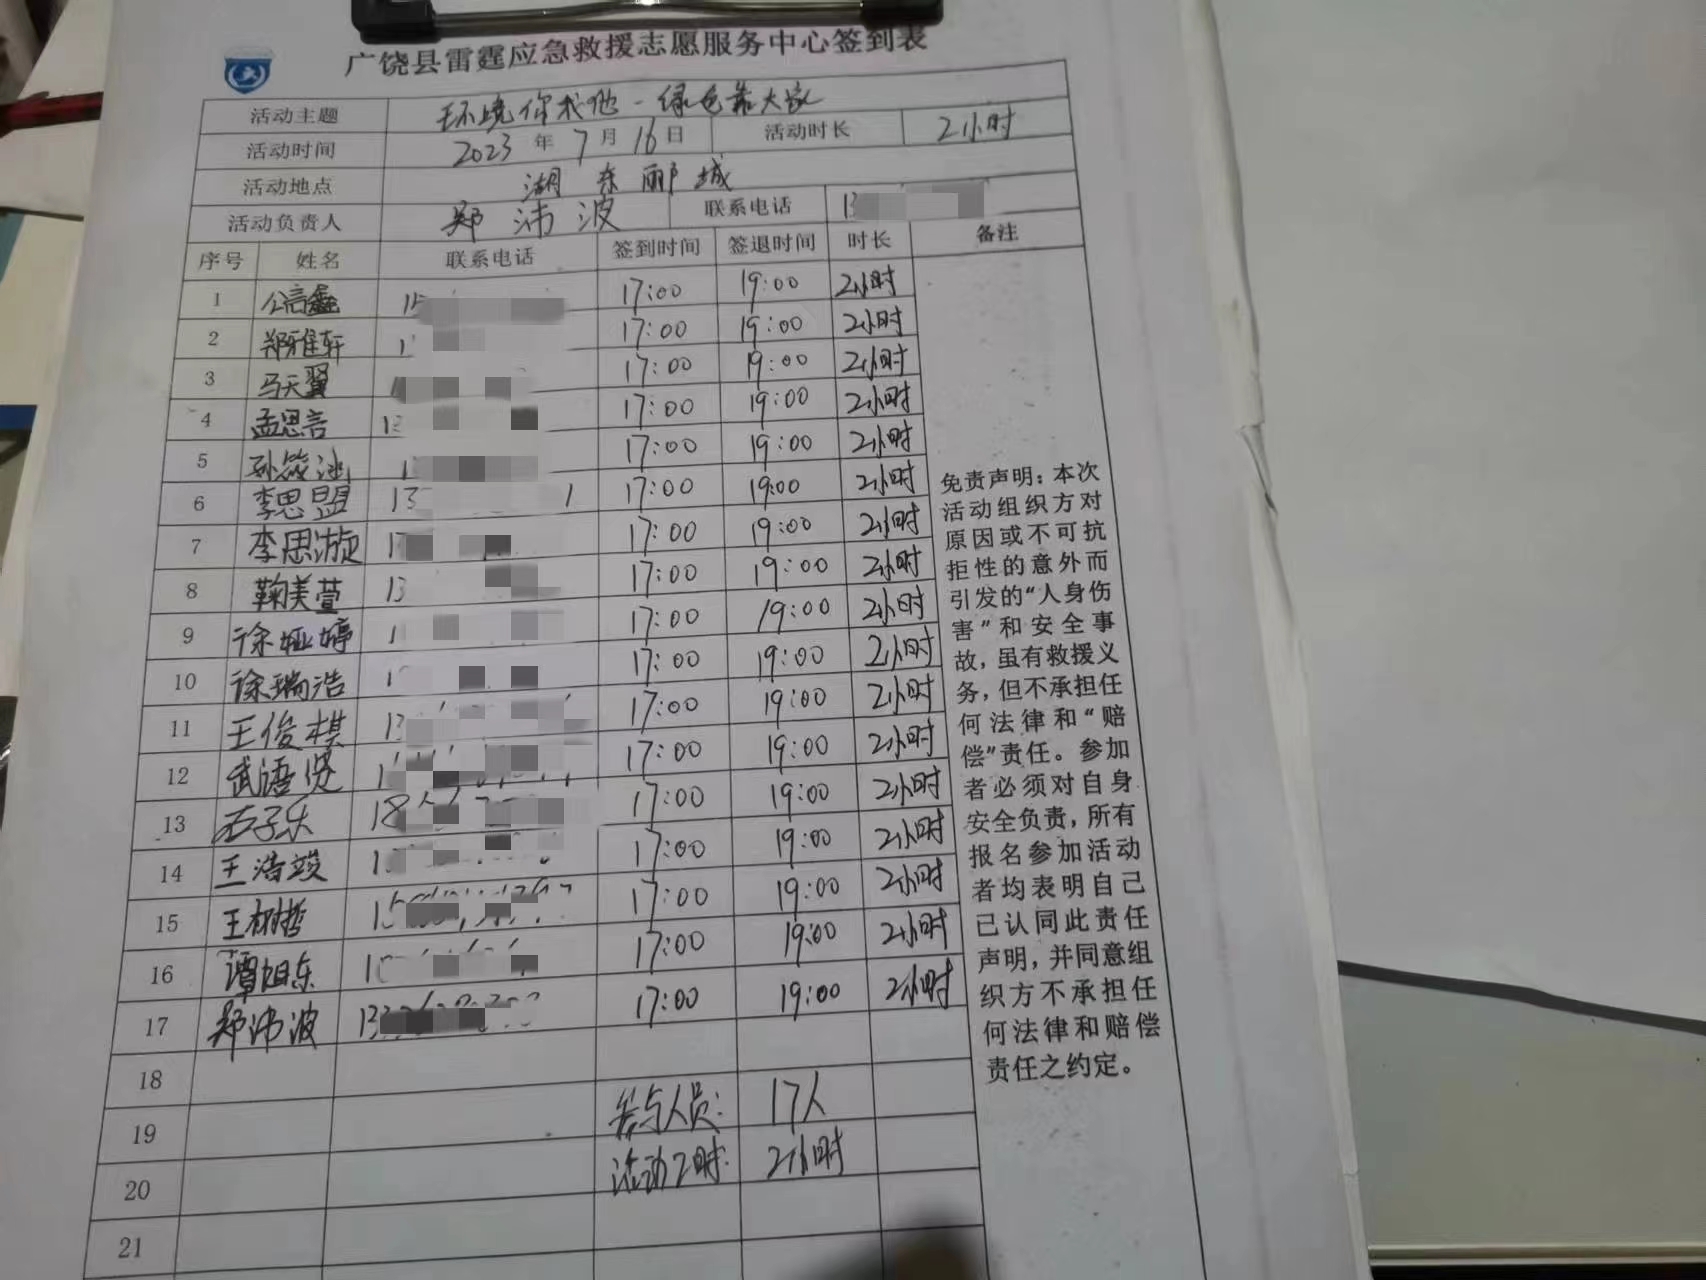 广饶县雷霆应急救援志愿服务中心签到表
活动主题 环境你我他-绿色靠大家
活动时间 2023 年 7 月 16 日 活动时长 2小时
活动地点 湖东郦城
活动负责人 郑沛波 联系电话 13
序号 姓名 联系电话 签到时间 签退时间 时长 备注
1 公言鑫 15 17:00 19:00 2小时
2 郑雅轩 1 17:00 19:00 2小时
3 马天翼 17:00 19:00 2小时
4 孟思言 13 17:00 19:00 2小时
5 孙筱涵 1 17:00 19:00 2小时
6 李思盟 13 1 17:00 19:00 2小时
7 李思漩 1 17:00 19:00 2小时
8 鞠美萱 13 17:00 19:00 2小时
9 徐娅婷 1 17:00 19:00 2小时
10 徐瑞浩 1 17:00 19:00 2小时
11 王俊棋 13 17:00 19:00 2小时
12 武语贤 1 17:00 19:00 2小时
13 石子乐 18 17:00 19:00 2小时
14 王浩竣 1 17:00 19:00 2小时
15 王树哲 15 17:00 19:00 2小时
16 谭旭东 1 17:00 19:00 2小时
17 郑沛波 133 17:00 19:00 2小时
18
19 参与人员: 17人
20 活动工时: 2小时
21
免责声明：本次
活动组织方对
原因或不可抗
拒性的意外而
引发的“人身伤
害”和安全事
故，虽有救援义
务，但不承担任
何法律和“赔
偿”责任。参加
者必须对自身
安全负责，所有
报名参加活动
者均表明自己
已认同此责任
声明，并同意组
织方不承担任
何法律和赔偿
责任之约定。